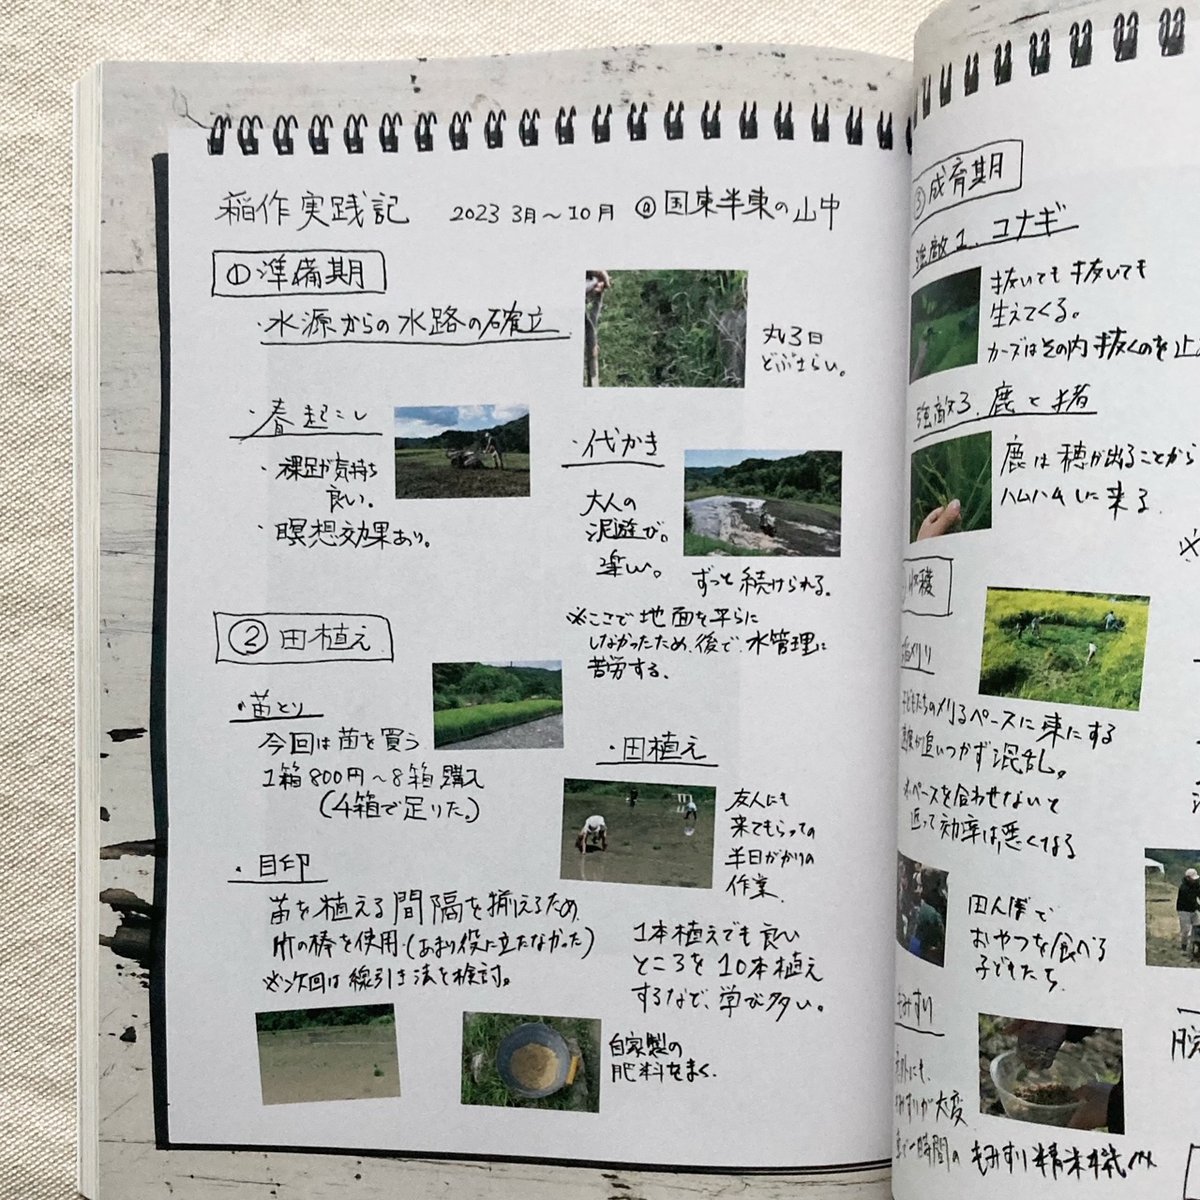 稲作実践記 2023 3月～10月 @国東半東の山中
①準備期
・水源からの水路の確立
丸3日
どぶさらい。
・春起こし
・裸足が気持ち
良い。
・瞑想効果あり。
・代かき
大人の
泥遊び。
楽しい。
ずっと続けられる。
※ここで地面を平らに
しなかったため、後で、水管理に
苦労する。
②田植え
・苗とり
今回は苗を買う
1箱800円～8箱購入
(4箱で足りた。)
・田植え
友人にも
来てもらっての
半日がかりの
作業
・目印
苗を植える間隔を揃えるため
竹の棒を使用・(あまり役に立たなかった)
※次回は線引き法を検討。
1本植えでも良い
ところを10本植え
するなど、学び多い。
自家製の
肥料をまく。
③成育期
強敵1. コナギ
抜いても抜いても
生えてくる。
カーズはその内抜くのを止
強敵3. 鹿と猪
鹿は穂が出ることから
ハムハムしに来る。
※
収穫
稲刈り
子どもたちの刈るペースに束にする
速度が追いつかず混乱。
※ペースを合わせないと
返って効率は悪くなる
田んぼで
おやつを食べる
子どもたち。
もみすり
もみすりが大変
一時間の もみすり精米機